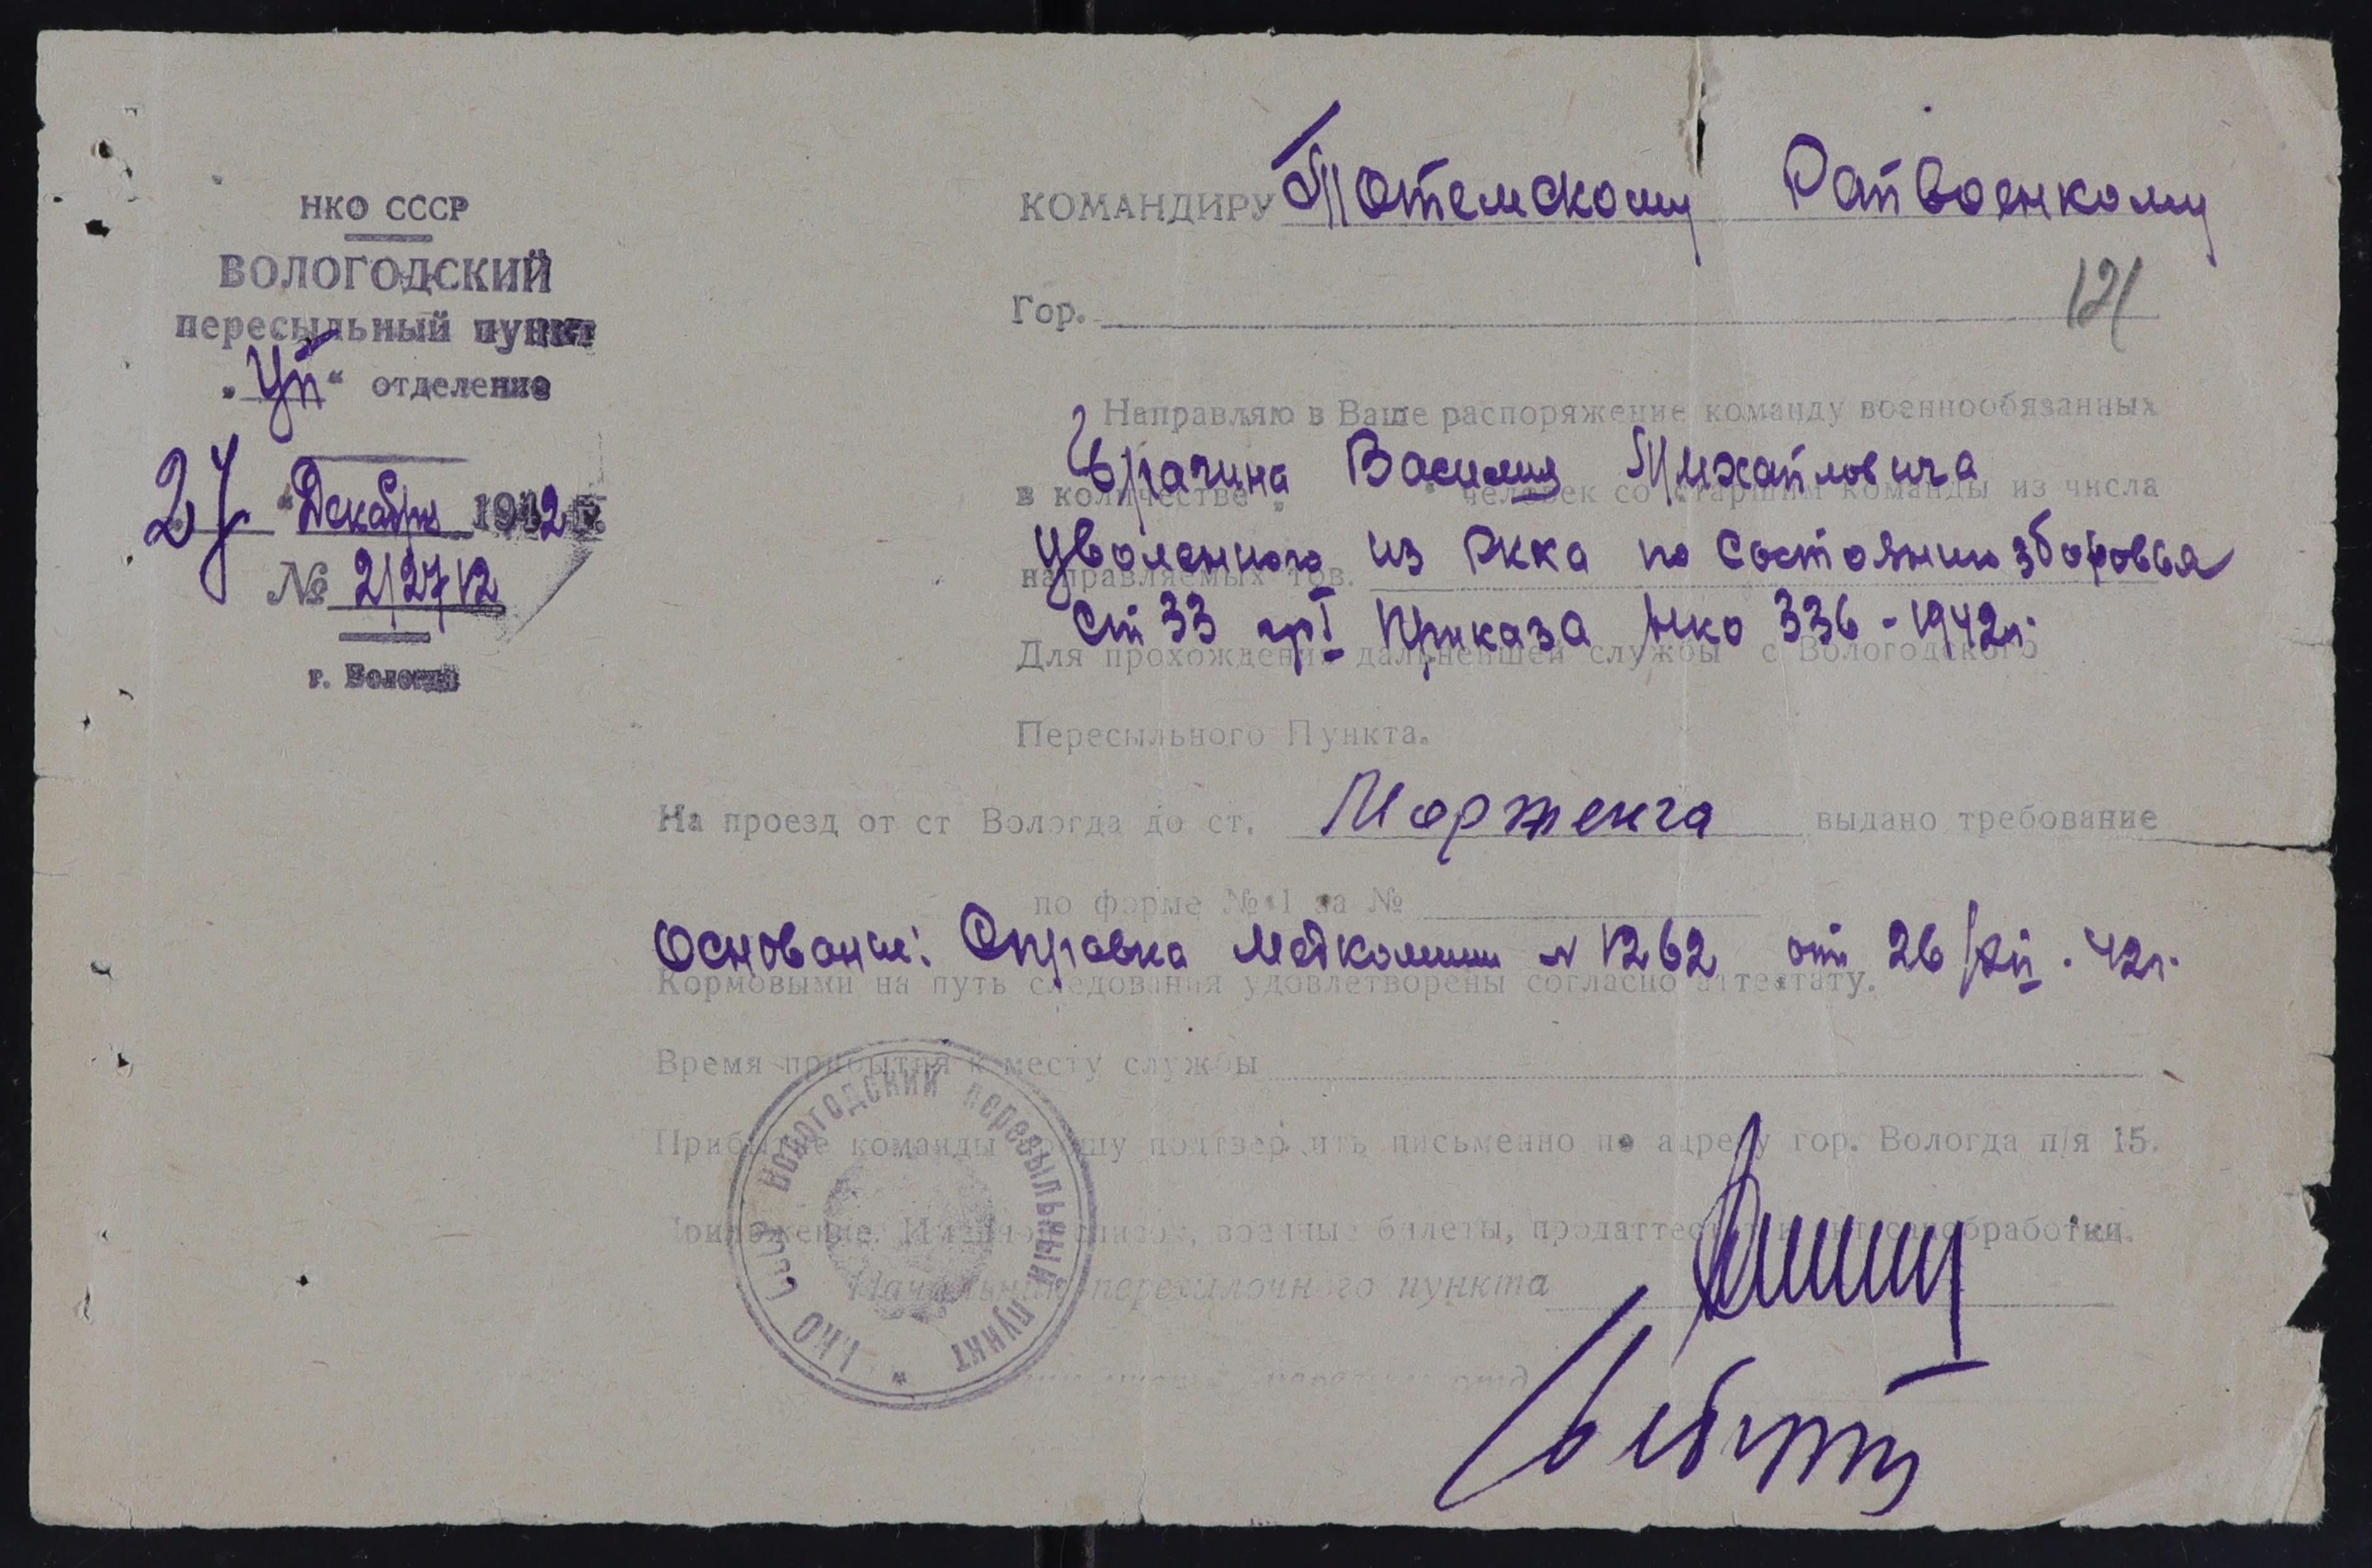 НКО СССР
ВОЛОГОДСКИЙ
пересыльный пункт
„УП“ отделение
27 “Декабря 1942 г.
№ 2/27/12
г. Вологда
КОМАНДИРУ Тотемскому Райвоенкому
Гор.
121
Направляю в Ваше распоряжение команду военнообязанных
Василия Михайловича
в количестве „ “ человек со старшим команды из числа
Уволенного из РККА по Состоянию здоровья
направляемых тов.
Ст 33 гр I Приказа НКО 336 - 1942г.
Для прохождения дальнейшей службы с Вологодского
Пересыльного Пункта.
На проезд от ст Вологда до ст. Морженга выдано требование
по форме № 1 за №
Основание: Справка Медкомиссии N 1262 от 26/XII . 42г.
Кормовыми на путь следования удовлетворены согласно аттестату.
Время прибытия к месту службы
Прибытие команды прошу подтвердить письменно по адресу гор. Вологда п/я 15.
Приложение: Именной список, военные билеты, продаттестат санобработки.
Начальник пересылочного пункта
НКО СССР Вологодский пересыльный пункт *